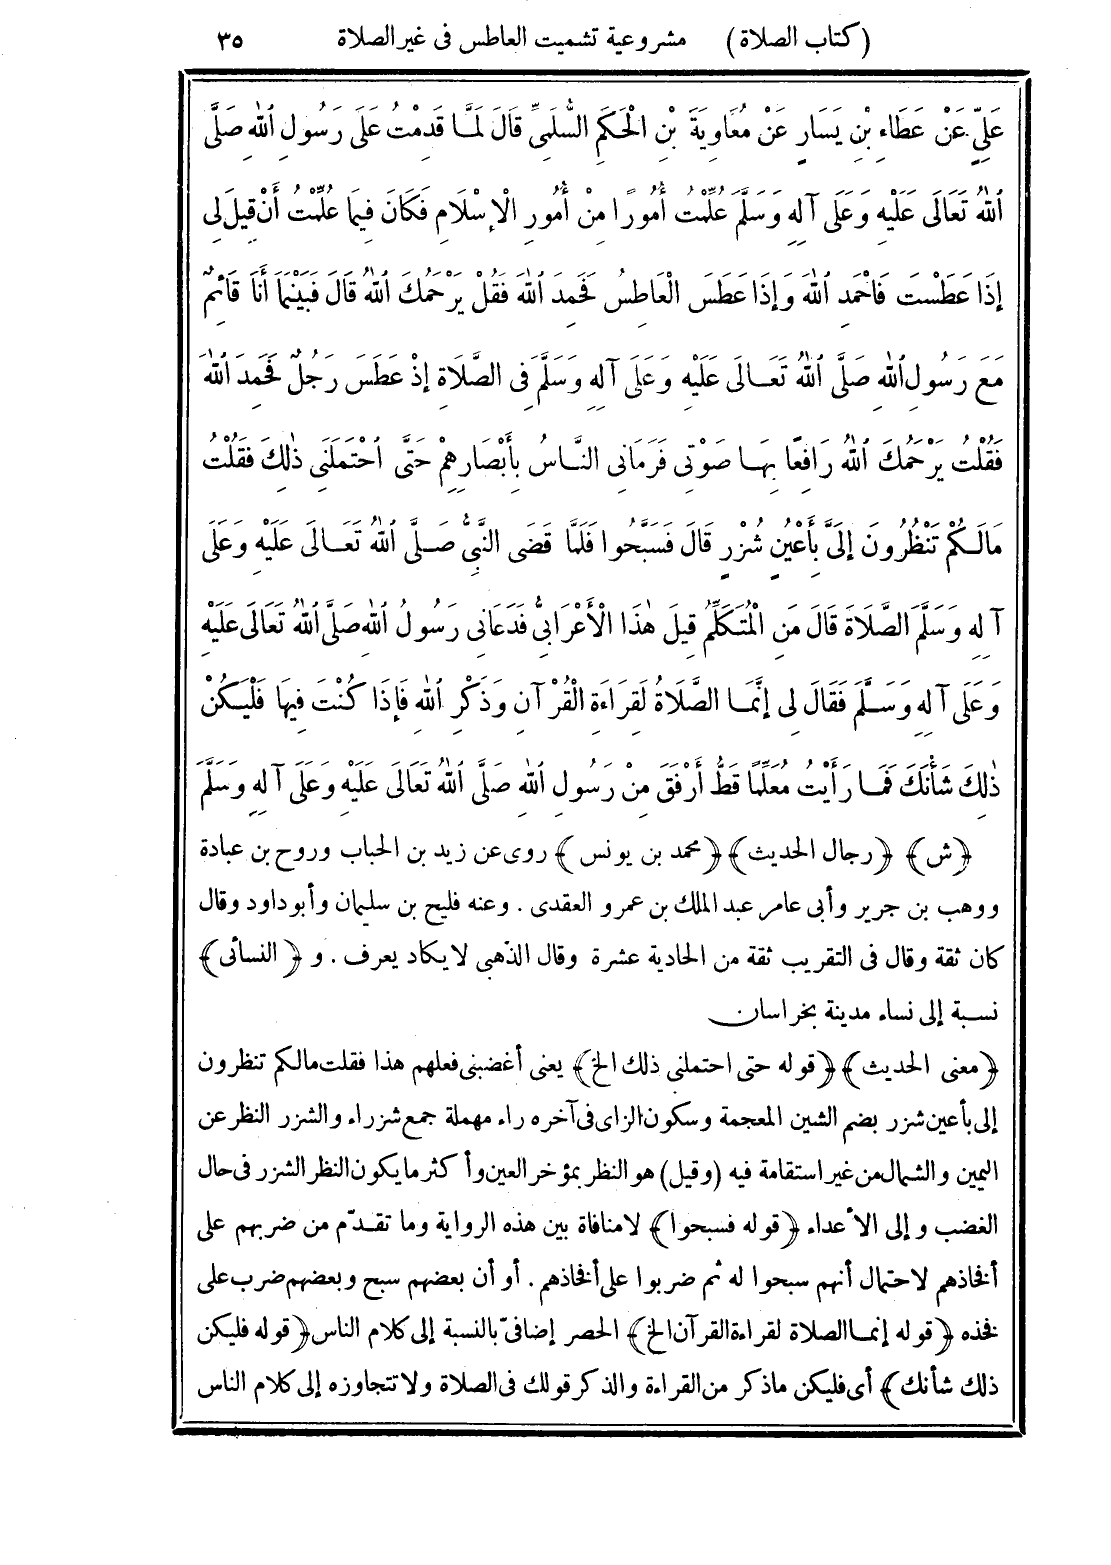 (كتاب الصلاة) مشروعية تشميت العاطس فى غير الصلاة ٣٥
عَلِيٍّ عَنْ عَطَاءِ بْنِ يَسَارٍ عَنْ مُعَاوِيَةَ بْنِ الْحَكَمِ السُّلَمِيِّ قَالَ لَمَّا قَدِمْتُ عَلَى رَسُولِ اللهِ صَلَّى
اللهُ تَعَالَى عَلَيْهِ وَعَلَى آلِهِ وَسَلَّمَ عُلِّمْتُ أُمُورًا مِنْ أُمُورِ الْإِسْلَامِ فَكَانَ فِيمَا عُلِّمْتُ أَنْ قِيلَ لِى
إِذَا عَطَسْتَ فَاحْمَدِ اللهَ وَإِذَا عَطَسَ الْعَاطِسُ فَحَمِدَ اللهَ فَقُلْ يَرْحَمُكَ اللهُ قَالَ فَبَيْنَمَا أَنَا قَائِمٌ
مَعَ رَسُولِ اللهِ صَلَّى اللهُ تَعَالَى عَلَيْهِ وَعَلَى آلِهِ وَسَلَّمَ فِى الصَّلَاةِ إِذْ عَطَسَ رَجُلٌ فَحَمِدَ اللهَ
فَقُلْتُ يَرْحَمُكَ اللهُ رَافِعًا بِهَا صَوْتِى فَرَمَانِى النَّاسُ بِأَبْصَارِهِمْ حَتَّى احْتَمَلَنِى ذٰلِكَ فَقُلْتُ
مَالَكُمْ تَنْظُرُونَ إِلَىَّ بِأَعْيُنٍ شُزْرٍ قَالَ فَسَبَّحُوا فَلَمَّا قَضَى النَّبِىُّ صَلَّى اللهُ تَعَالَى عَلَيْهِ وَعَلَى
آلِهِ وَسَلَّمَ الصَّلَاةَ قَالَ مَنِ الْمُتَكَلِّمُ قِيلَ هٰذَا الْأَعْرَابِىُّ فَدَعَانِى رَسُولُ اللهِ صَلَّى اللهُ تَعَالَى عَلَيْهِ
وَعَلَى آلِهِ وَسَلَّمَ فَقَالَ لِى إِنَّمَا الصَّلَاةُ لِقِرَاءَةِ الْقُرْآنِ وَذِكْرِ اللهِ فَإِذَا كُنْتَ فِيهَا فَلْيَكُنْ
ذٰلِكَ شَأْنَكَ فَمَا رَأَيْتُ مُعَلِّمًا قَطُّ أَرْفَقَ مِنْ رَسُولِ اللهِ صَلَّى اللهُ تَعَالَى عَلَيْهِ وَعَلَى آلِهِ وَسَلَّمَ
﴿ش﴾ ﴿رجال الحديث﴾ ﴿محمد بن يونس﴾ روى عن زيد بن الحباب وروح بن عبادة
ووهب بن جرير وأبى عامر عبد الملك بن عمرو العقدى. وعنه فليح بن سليمان وأبو داود وقال
كان ثقة وقال فى التقريب ثقة من الحادية عشرة وقال الذهبى لا يكاد يعرف. و ﴿النسائى﴾
نسبة إلى نساء مدينة بخراسان
﴿معنى الحديث﴾ ﴿قوله حتى احتملنى ذلك الخ﴾ يعنى أغضبنى فعلهم هذا فقلت مالكم تنظرون
إلى بأعين شزر بضم الشين المعجمة وسكون الزاى فى آخره راء مهملة جمع شزراء والشزر النظر عن
اليمين والشمال من غير استقامة فيه (وقيل) هو النظر بمؤخر العين وأكثر ما يكون النظر الشزر فى حال
الغضب وإلى الأعداء ﴿قوله فسبحوا﴾ لا منافاة بين هذه الرواية وما تقدّم من ضربهم على
أفخاذهم لاحتمال أنهم سبحوا له ثم ضربوا على أفخاذهم. أو أن بعضهم سبح وبعضهم ضرب على
فخذه ﴿قوله إنما الصلاة لقراءة القرآن الخ﴾ الحصر إضافىّ بالنسبة إلى كلام الناس ﴿قوله فليكن
ذلك شأنك﴾ أى فليكن ماذكر من القراءة والذكر قولك فى الصلاة ولا تتجاوزه إلى كلام الناس